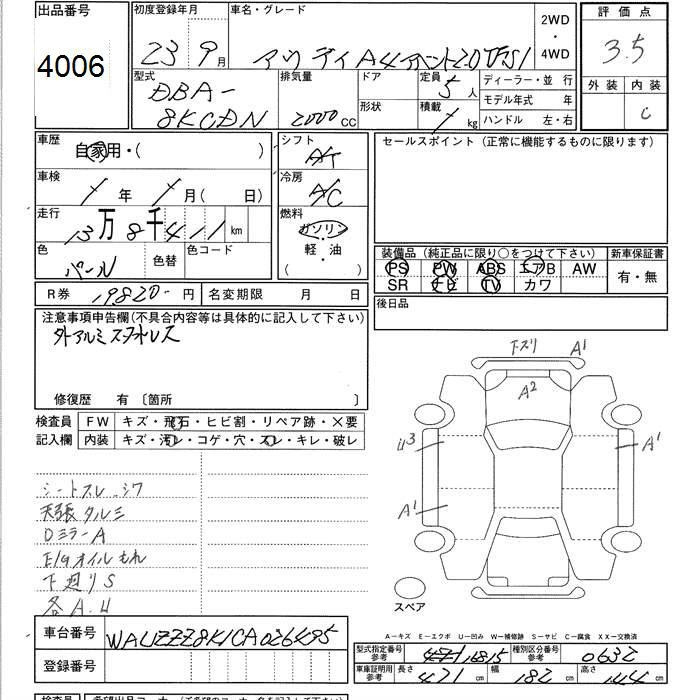 出品番号
4006
初度登録年月
23 9月
車名・グレード
アウディA4アバント2.0TFSI
2WD
・
4WD
評価点
3.5
型式
DBA-
8KCDN
排気量
2000cc
ドア
形状
定員
5人
積載
kg
ディーラー・並行
モデル年式 年
ハンドル 左・右
外装
内装
C
車歴
自家用・( )
シフト
A/T
セールスポイント(正常に機能するものに限ります)
車検
年 月( 日)
冷房
A/C
走行
13万8千411km
燃料
ガソリン
・
軽・油
( )
色
パール
色替
色コード
装備品(純正品に限り○をつけて下さい)
新車保証書
PS PW ABS エアB AW
SR ナビ TV カワ
有・無
R券 19820円
名変期限 月 日
後日品
注意事項申告欄(不具合内容等は具体的に記入して下さい)
外アルミスタッドレス
修復歴 有〔箇所 〕
検査員
記入欄
FW キズ・飛石・ヒビ割・リペア跡・×要
内装 キズ・汚レ・コゲ・穴・スレ・キレ・破レ
シートスレ シワ
天張タルミ
DミラーA
E/Gオイルもれ
下廻りS
各A.U
下ズリ A1
A2
U3
A1
A1
スペア
A－キズ E－エクボ U－凹み W－補修跡 S－サビ C－腐食 XX－交換済
車台番号
WAUZZZ8K1CA026495
登録番号
型式指定番号
参考
16815
種別区分番号
参考
0632
車庫証明用
参考
長さ 471cm
幅 182cm
高さ 144cm